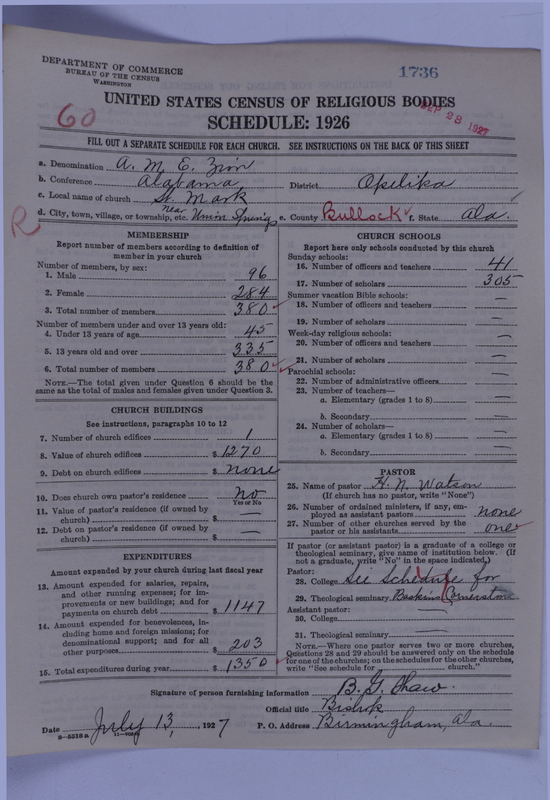 DEPARTMENT OF COMMERCE
BUREAU OF THE CENSUS
WASHINGTON
1736
60
SEP 28 1927
UNITED STATES CENSUS OF RELIGIOUS BODIES
SCHEDULE: 1926
FILL OUT A SEPARATE SCHEDULE FOR EACH CHURCH. SEE INSTRUCTIONS ON THE BACK OF THIS SHEET
a. Denomination A. M. E. Zion
b. Conference Alabama District Opelika
c. Local name of church St. Mark
d. City, town, village, or township, etc. Near Union Springs e. County Bullock f. State Ala.
R
MEMBERSHIP
Report number of members according to definition of
member in your church
Number of members, by sex:
1. Male 96
2. Female 284
3. Total number of members 380
Number of members under and over 13 years old:
4. Under 13 years of age 45
5. 13 years old and over 335
6. Total number of members 380
NOTE.—The total given under Question 6 should be
same as the total of males and females given under Question 3.
CHURCH BUILDINGS
See instructions, paragraphs 10 to 12
7. Number of church edifices 1
8. Value of church edifices $ 1270
9. Debt on church edifices $ none
10. Does church own pastor's residence no
Yes or No
11. Value of pastor's residence (if owned by
church) $ —
12. Debt on pastor's residence (if owned by
church) $ —
EXPENDITURES
Amount expended by your church during last fiscal year
13. Amount expended for salaries, repairs,
and other running expenses; for im-
provements or new buildings; and for
payments on church debt $ 1147
14. Amount expended for benevolences, in-
cluding home and foreign missions; for
denominational support; and for all
other purposes $ 203
15. Total expenditures during year $ 1350
CHURCH SCHOOLS
Report here only schools conducted by this church
Sunday schools:
16. Number of officers and teachers 41
17. Number of scholars 305
Summer vacation Bible schools:
18. Number of officers and teachers —
19. Number of scholars —
Week-day religious schools:
20. Number of officers and teachers —
21. Number of scholars —
Parochial schools:
22. Number of administrative officers —
23. Number of teachers—
a. Elementary (grades 1 to 8) —
b. Secondary —
24. Number of scholars—
a. Elementary (grades 1 to 8) —
b. Secondary —
PASTOR
25. Name of pastor H. N. Watson
(If church has no pastor, write "None")
26. Number of ordained ministers, if any, em-
ployed as assistant pastors none
27. Number of other churches served by the
pastor or his assistants one
If pastor (or assistant pastor) is a graduate of a college or
theological seminary, give name of institution below. (If
not a graduate, write "No" in the space indicated.)
Pastor:
28. College See Schedule for
29. Theological seminary Cornerstone
Assistant pastor:
30. College —
31. Theological seminary —
NOTE.—Where one pastor serves two or more churches,
Questions 28 and 29 should be answered only on the schedule
for one of the churches; on the schedules for the other churches,
write "See schedule for church."
Signature of person furnishing information B. G. Shaw.
Official title Bishop
Date July 13, 1927 P. O. Address Birmingham, Ala.